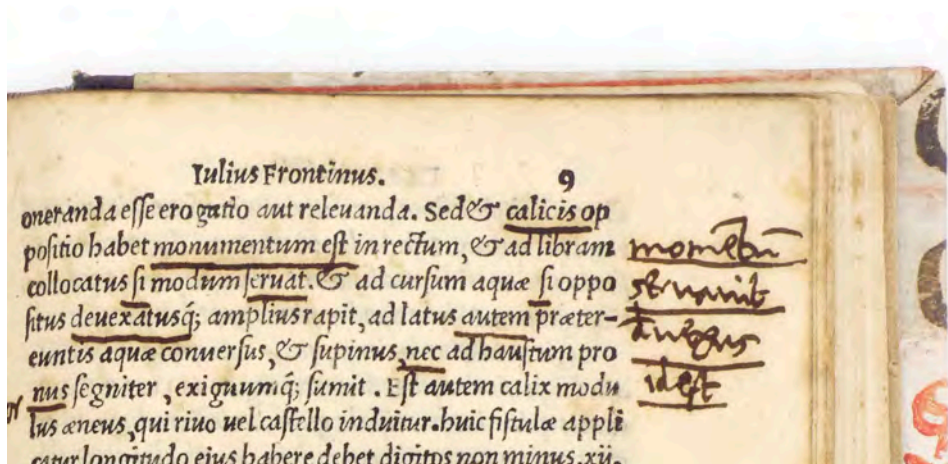 Iulius Frontinus. 9
oneranda esse erogatio aut releuanda. Sed & calicis op
positio habet monumentum est in rectum, & ad libram
collocatus si modum seruat. & ad cursum aquæ si oppo
situs deuexatusq; amplius rapit, ad latus autem præter-
euntis aquæ conuersus, & supinus, nec ad haustum pro
nus segniter, exiguumq; sumit. Est autem calix modu
lus æneus, qui riuo uel castello induitur. huic fistulæ appli
catur longitudo eius habere debet digitos non minus .xii.
seruauit
idest